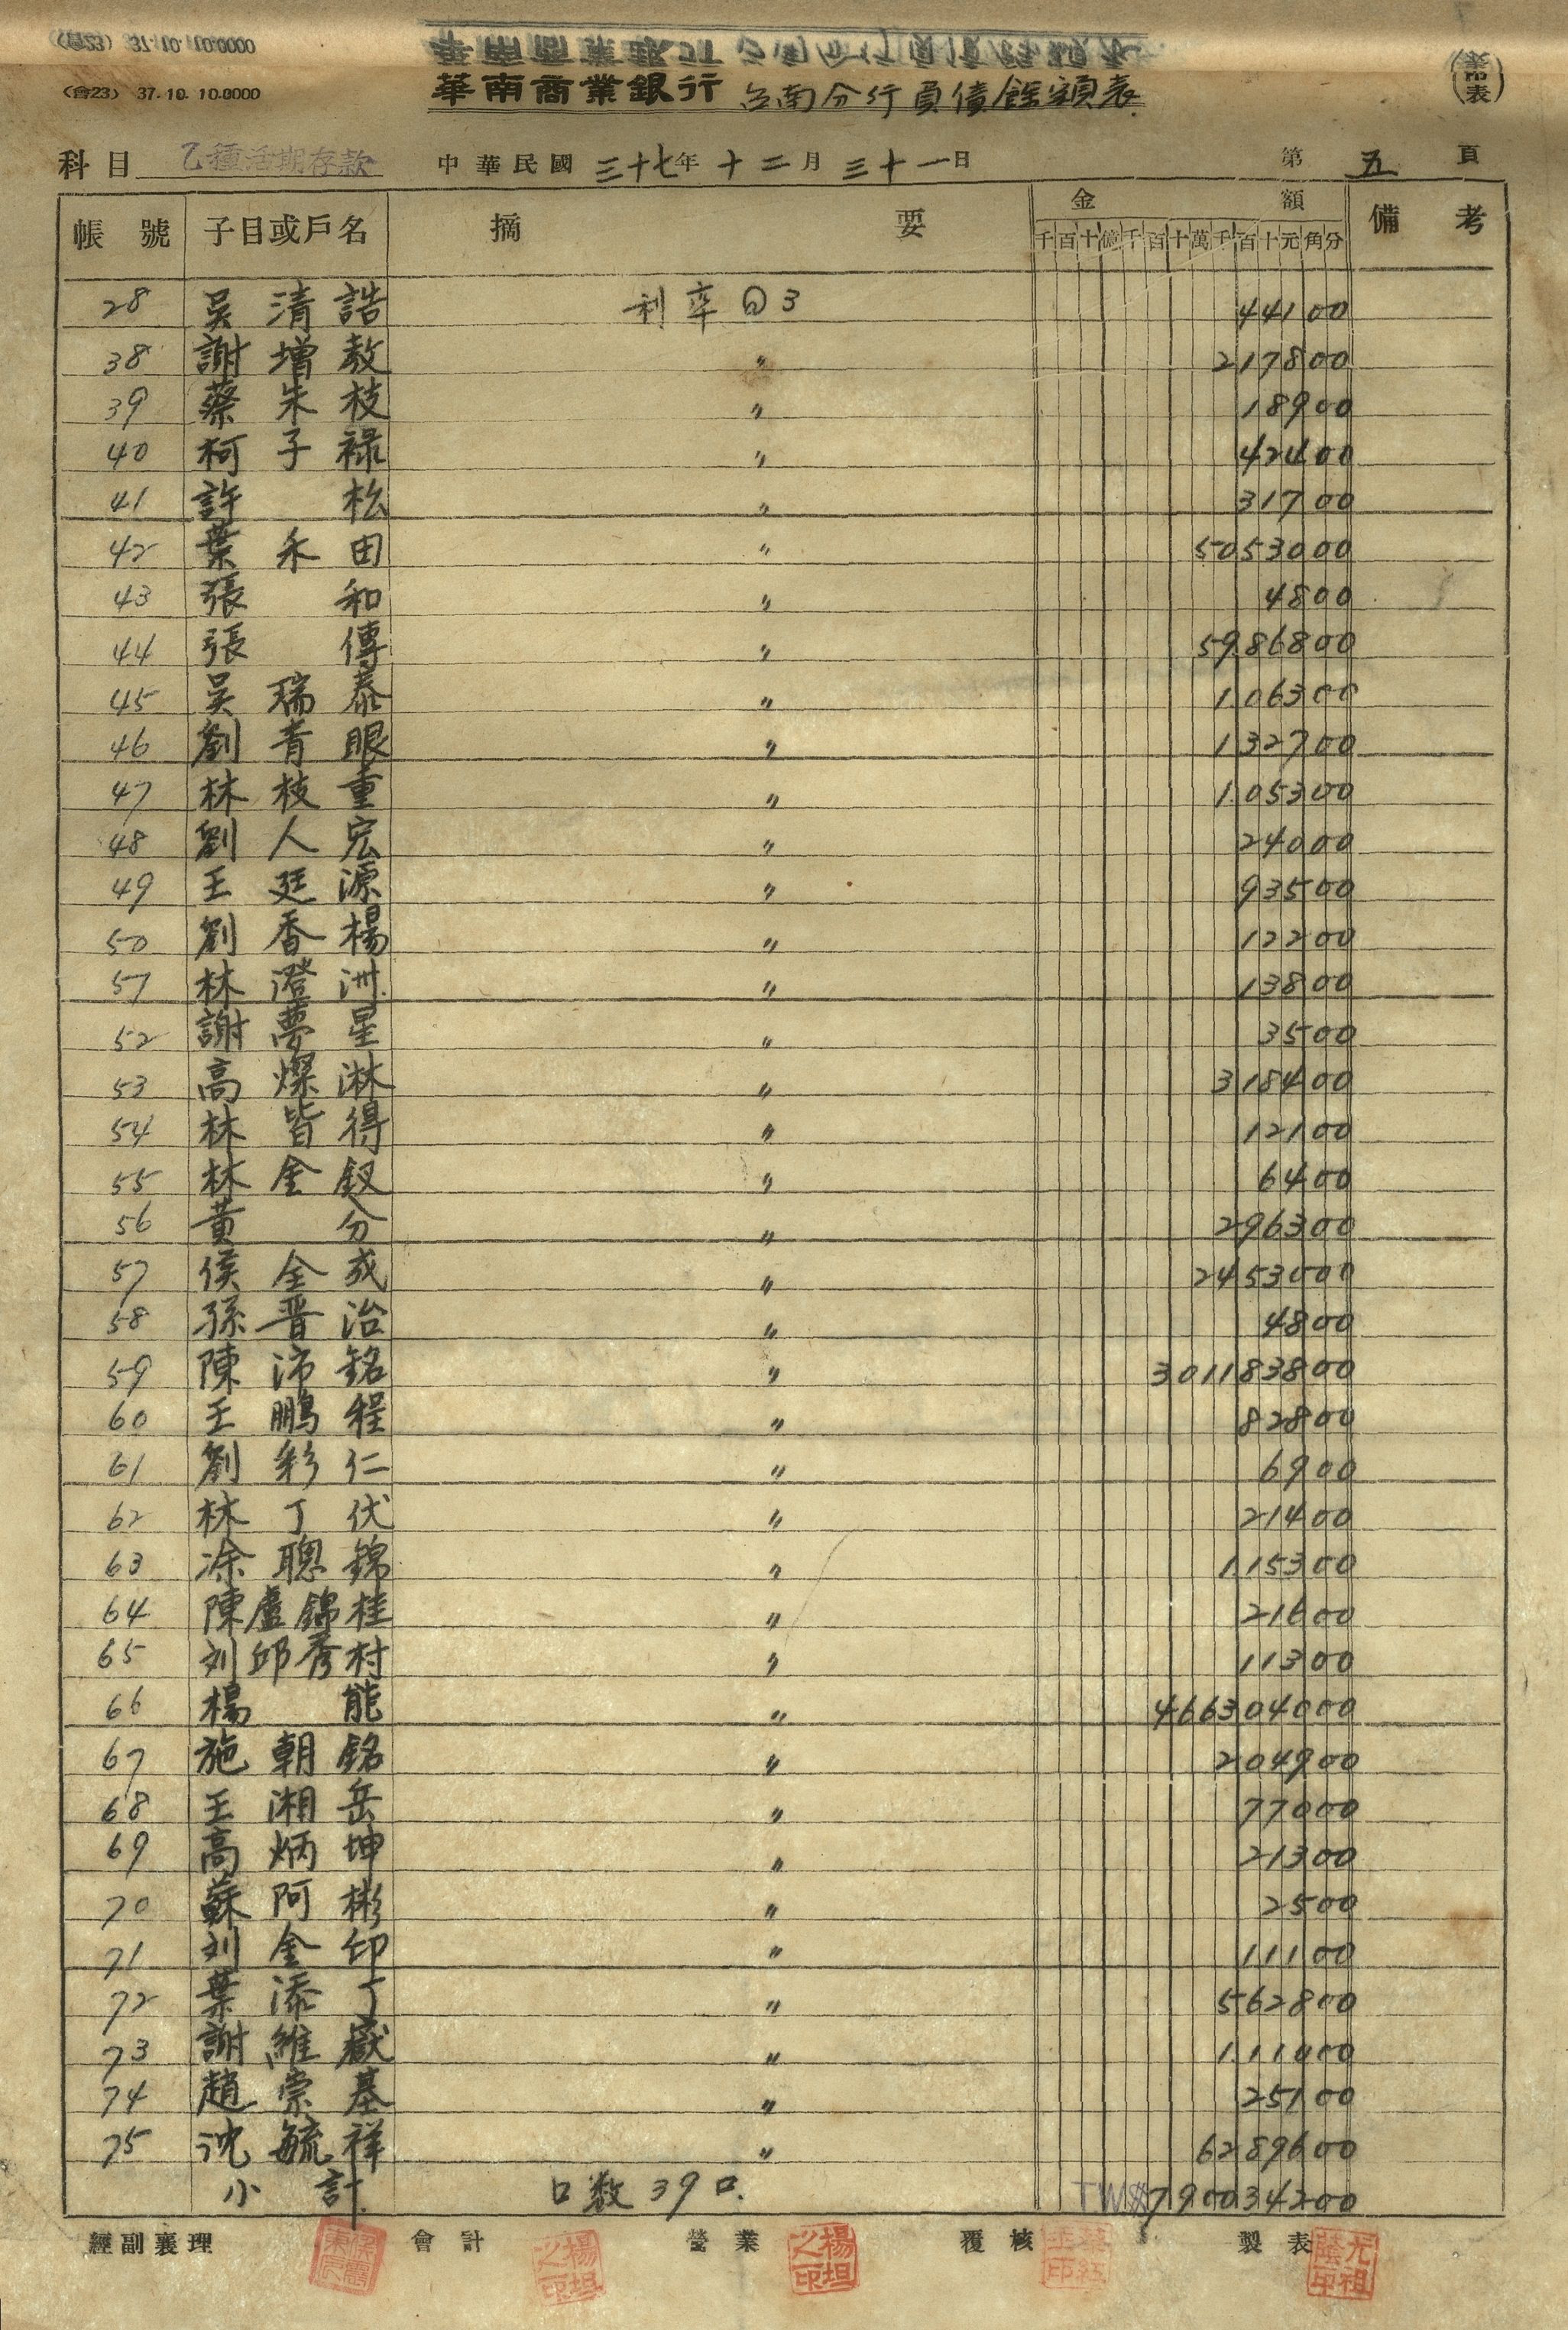 (會23) 37.10. 10.0000
華南商業銀行 台南分行負債餘額表
科目 乙種活期存款 中華民國 三十七年 十二月 三十一日 第 五 頁
帳號 子目或戶名 摘要 金額 備考
千百十億千百十萬千百十元角分
28 吳清誥 利率@3 44100
38 謝增教 〃 217800
39 蔡朱枝 〃 18900
40 柯子祿 〃 42400
41 許松 〃 31700
42 葉禾田 〃 5053000
43 張和 〃 4800
44 張傳 〃 5986800
45 吳瑞泰 〃 106300
46 劉青眼 〃 132700
47 林枝重 〃 105300
48 劉人宏 〃 24000
49 王廷源 〃 93500
50 劉香楊 〃 12200
51 林澄洲 〃 13800
52 謝夢星 〃 3500
53 高燦淋 〃 318400
54 林皆得 〃 12100
55 林金釵 〃 6400
56 黃分 〃 296300
57 侯全成 〃 2453000
58 孫晋治 〃 4800
59 陳沛銘 〃 301183800
60 王鵬程 〃 82800
61 劉彩仁 〃 6900
62 林丁伏 〃 21400
63 涂聰錦 〃 115300
64 陳盧錦桂 〃 21600
65 刘邱秀村 〃 11300
66 楊能 〃 466304000
67 施朝銘 〃 204900
68 王湘岳 〃 77000
69 高炳坤 〃 21300
70 蘇阿彬 〃 2500
71 刘金印 〃 11100
72 葉添丁 〃 562800
73 謝維嶽 〃 111000
74 趙崇基 〃 25100
75 沈毓祥 〃 6289600
小計 口数39口. TW$790034200
經副襄理 會計 營業 覆核 製表
楊坦之印 楊坦之印